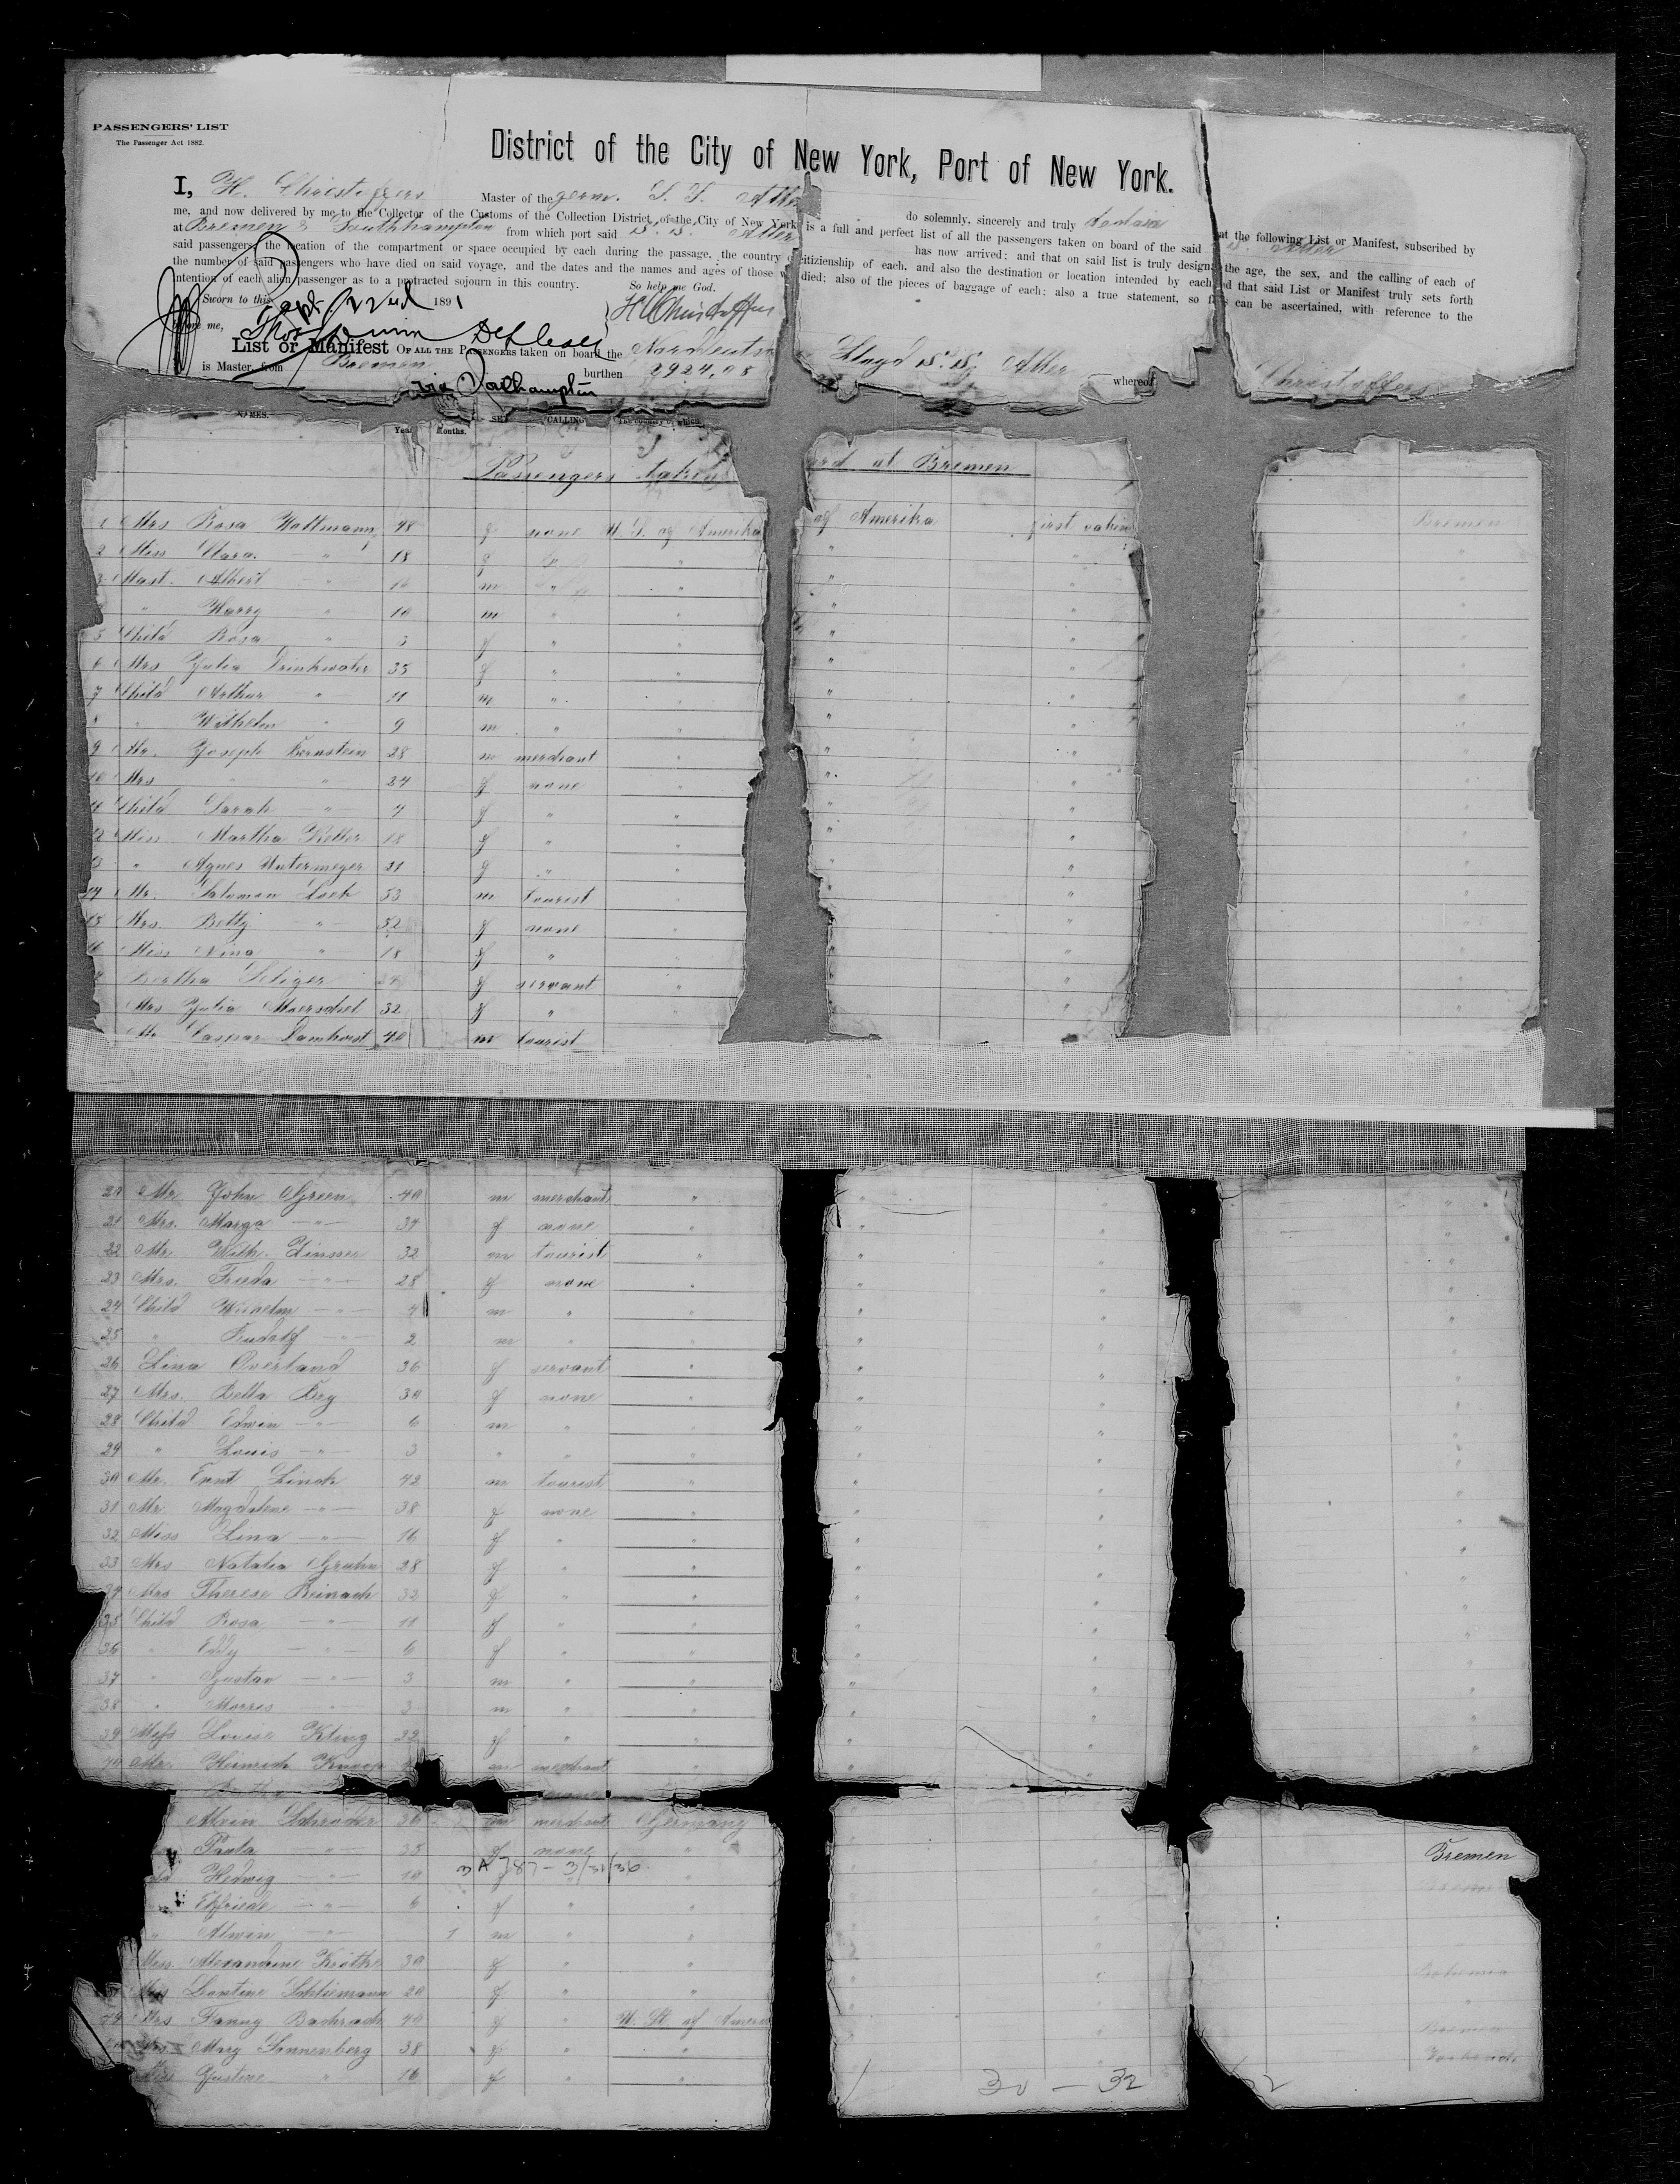 PASSENGERS' LIST
The Passenger Act 1882.
District of the City of New York, Port of New York.
I, H. Christoffers Master of the germ. S. S. Aller do solemnly, sincerely and truly declare that the following List or Manifest, subscribed by
me, and now delivered by me to the Collector of the Customs of the Collection District of the City of New York is a full and perfect list of all the passengers taken on board of the said S. S. Aller
at Bremen & Southhampton from which port said S. S. Aller has now arrived; and that on said list is truly designated the age, the sex, and the calling of each of
said passengers, the location of the compartment or space occupied by each during the passage, the country of citizienship of each, and also the destination or location intended by each and that said List or Manifest truly sets forth
the number of said passengers who have died on said voyage, and the dates and the names and ages of those who died; also of the pieces of baggage of each; also a true statement, so far as can be ascertained, with reference to the
intention of each alien passenger as to a protracted sojourn in this country. So help me God.
Sworn to this Sept. 22nd 1891 H Christoffers
before me,
List or Manifest OF ALL THE PASSENGERS taken on board the Norddeutsch Lloyd S. S. Aller whereof Christoffers
is Master, from Bremen burthen 2924,08
via Southampton
NAMES. Years Months. SEX CALLING The country of which
Passengers taken ord at Bremen
1 Mrs Rosa Wattmann 48 f none U. S. of Amerika of Amerika first cabin Bremen
2 Miss Clara " 18 f " " " "
3 Mast. Albert " m " " " "
" Harry " 10 m " " " "
5 Child Rosa " 3 f " " " "
6 Mrs Julia Drinkwater 35 f " " " "
7 Child Arthur " 11 m " " " "
8 " Wilhelm " 9 m " " " "
9 Mr. Joseph Bernstein 28 m merchant " " "
10 Mrs " " 24 f none " " "
11 Child Sarah " 4 f " " " "
12 Miss Martha Keller 18 f " " " "
13 " Agnes Untermeyer 21 f " " " "
14 Mr. Salomon Loeb 53 m tourist " " "
15 Mrs. Betty " 52 f none " " "
16 Miss Nina " 18 f " " " "
Bertha Seliger 24 f servant " " "
Mrs Julia Moerschel 32 f " " " "
Mr Caspar Damhorst 40 m tourist
20 Mr John Green 40 m merchant " " " "
21 Mrs. Marga " 34 f none " " " "
22 Mr Wilh. Zinsser 32 m tourist " " " "
23 Mrs. Frieda " 28 f none " " " "
24 Child Wilhelm " 4 m " " " " "
25 " Rudolf " 2 m " " " " "
26 Lina Overland 36 f servant " " " "
27 Mrs. Bella Bry 30 f none " " " "
28 Child Edwin " 6 m " " " " "
29 " Louis " 3 " " " " " "
30 Mr. Ernst Linck 42 m tourist " " " "
31 Mr. Magdalene " 38 f none " " " "
32 Miss Lina " 16 f " " " " "
33 Mrs Natalia Gruhn 28 f " " " " "
34 Mrs Therese Reinach 32 f " " " " "
35 Child Rosa " 11 f " " " " "
36 " Eddy " 6 f " " " " "
37 " Gustav " 3 m " " " " "
38 " Morris " 3 m " " " " "
39 Miss Louise Kling 22 f " " " " "
40 Mr. Heinrich m merchant " " " "
Alvin Schroder 36 m merchant Germany
Paula " 35 f none " Bremen
Hedwig " 10 f " "
3A 787 - 3/31/36
Elfriede " 6 f " "
" Alwin " 1 m " "
Miss. Alexandrine Kothe 30 f " "
Miss Leontine Schliemann 20 f " "
49 Mrs Fanny Bachrach 40 f " U. St. of America Bremen
Mrs. Mary Sonnenberg 38 f " "
Miss Justine " 16 f " "
30 - 32